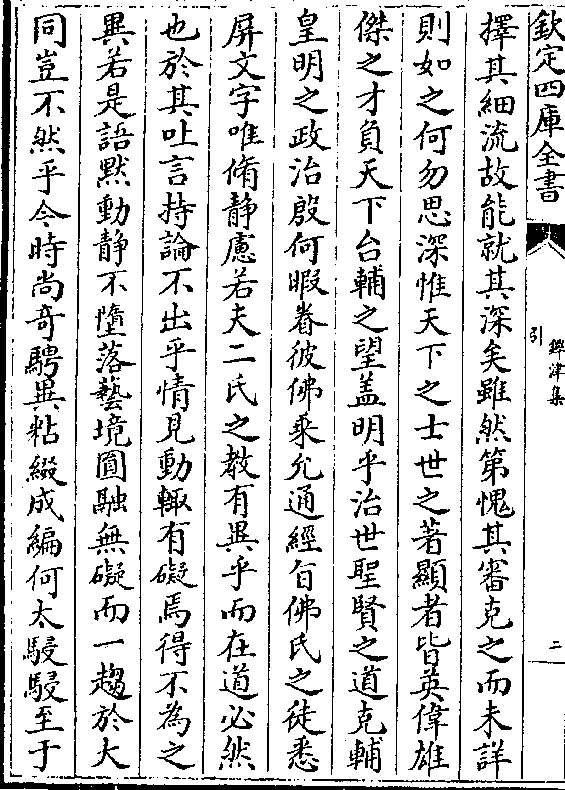 欽定四庫全書
鐔津集
引
二
擇其細流故能就其深矣雖然第愧其審克之而未詳
則如之何勿思深惟天下之士世之著顯者皆英偉雄
傑之才負天下台輔之望盖明乎治世聖賢之道克輔
皇明之政治殷何暇眷彼佛乘允通經旨佛氏之徒悉
屏文字唯脩静慮若夫二氏之教有異乎而在道必然
也於其吐言持論不出乎情見動輙有礙焉得不為之
異若是語黙動静不墮落藝境圓融無礙而一趨於大
同豈不然乎今時尚奇騁異粘綴成編何太駸駸至于